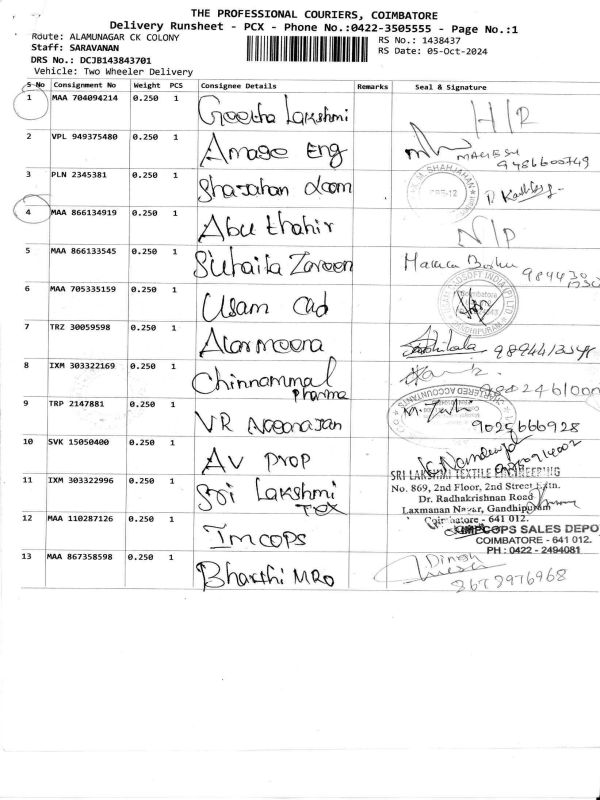 THE PROFESSIONAL COURIERS, COIMBATORE
Delivery Runsheet - PCX - Phone No.:0422-3505555 - Page No.:1
Route: ALAMUNAGAR CK COLONY
RS No.: 1438437
Staff: SARAVANAN
RS Date: 05-Oct-2024
DRS No.: DCJB143843701
Vehicle: Two Wheeler Delivery
S No Consignment No Weight PCS Consignee Details Remarks Seal & Signature
1 MAA 704094214 0.250 1 Geetha Lakshmi H/R
2 VPL 949375480 0.250 1 Amage Eng
9486600749
3 PLN 2345381 0.250 1 Shajahan doom
SHAHJAHAN
4 MAA 866134919 0.250 1 Abu thahir N/P
5 MAA 866133545 0.250 1 Suhaila Zareen
6 MAA 705335159 0.250 1 Usam Cad
7 TRZ 30059598 0.250 1 Alarmeera
8 IXM 303322169 0.250 1 Chinnammal
Pharma
9 TRP 2147881 0.250 1 VR Neeonajan
9025666928
10 SVK 15050400 0.250 1 AV Prop
11 IXM 303322996 0.250 1 Sri Lakshmi
Tex
SRI LAKSHMI TEXTILE ENGINEERING
No. 869, 2nd Floor, 2nd Street Extn.
Dr. Radhakrishnan Road
Laxmanan Nagar, Gandhipuram
Coimbatore - 641 012.
12 MAA 110287126 0.250 1 Imcops
IMPCOPS SALES DEPO
COIMBATORE - 641 012.
PH : 0422 - 2494081
13 MAA 867358598 0.250 1 Bharthi MRO
Dinesh
8678976968